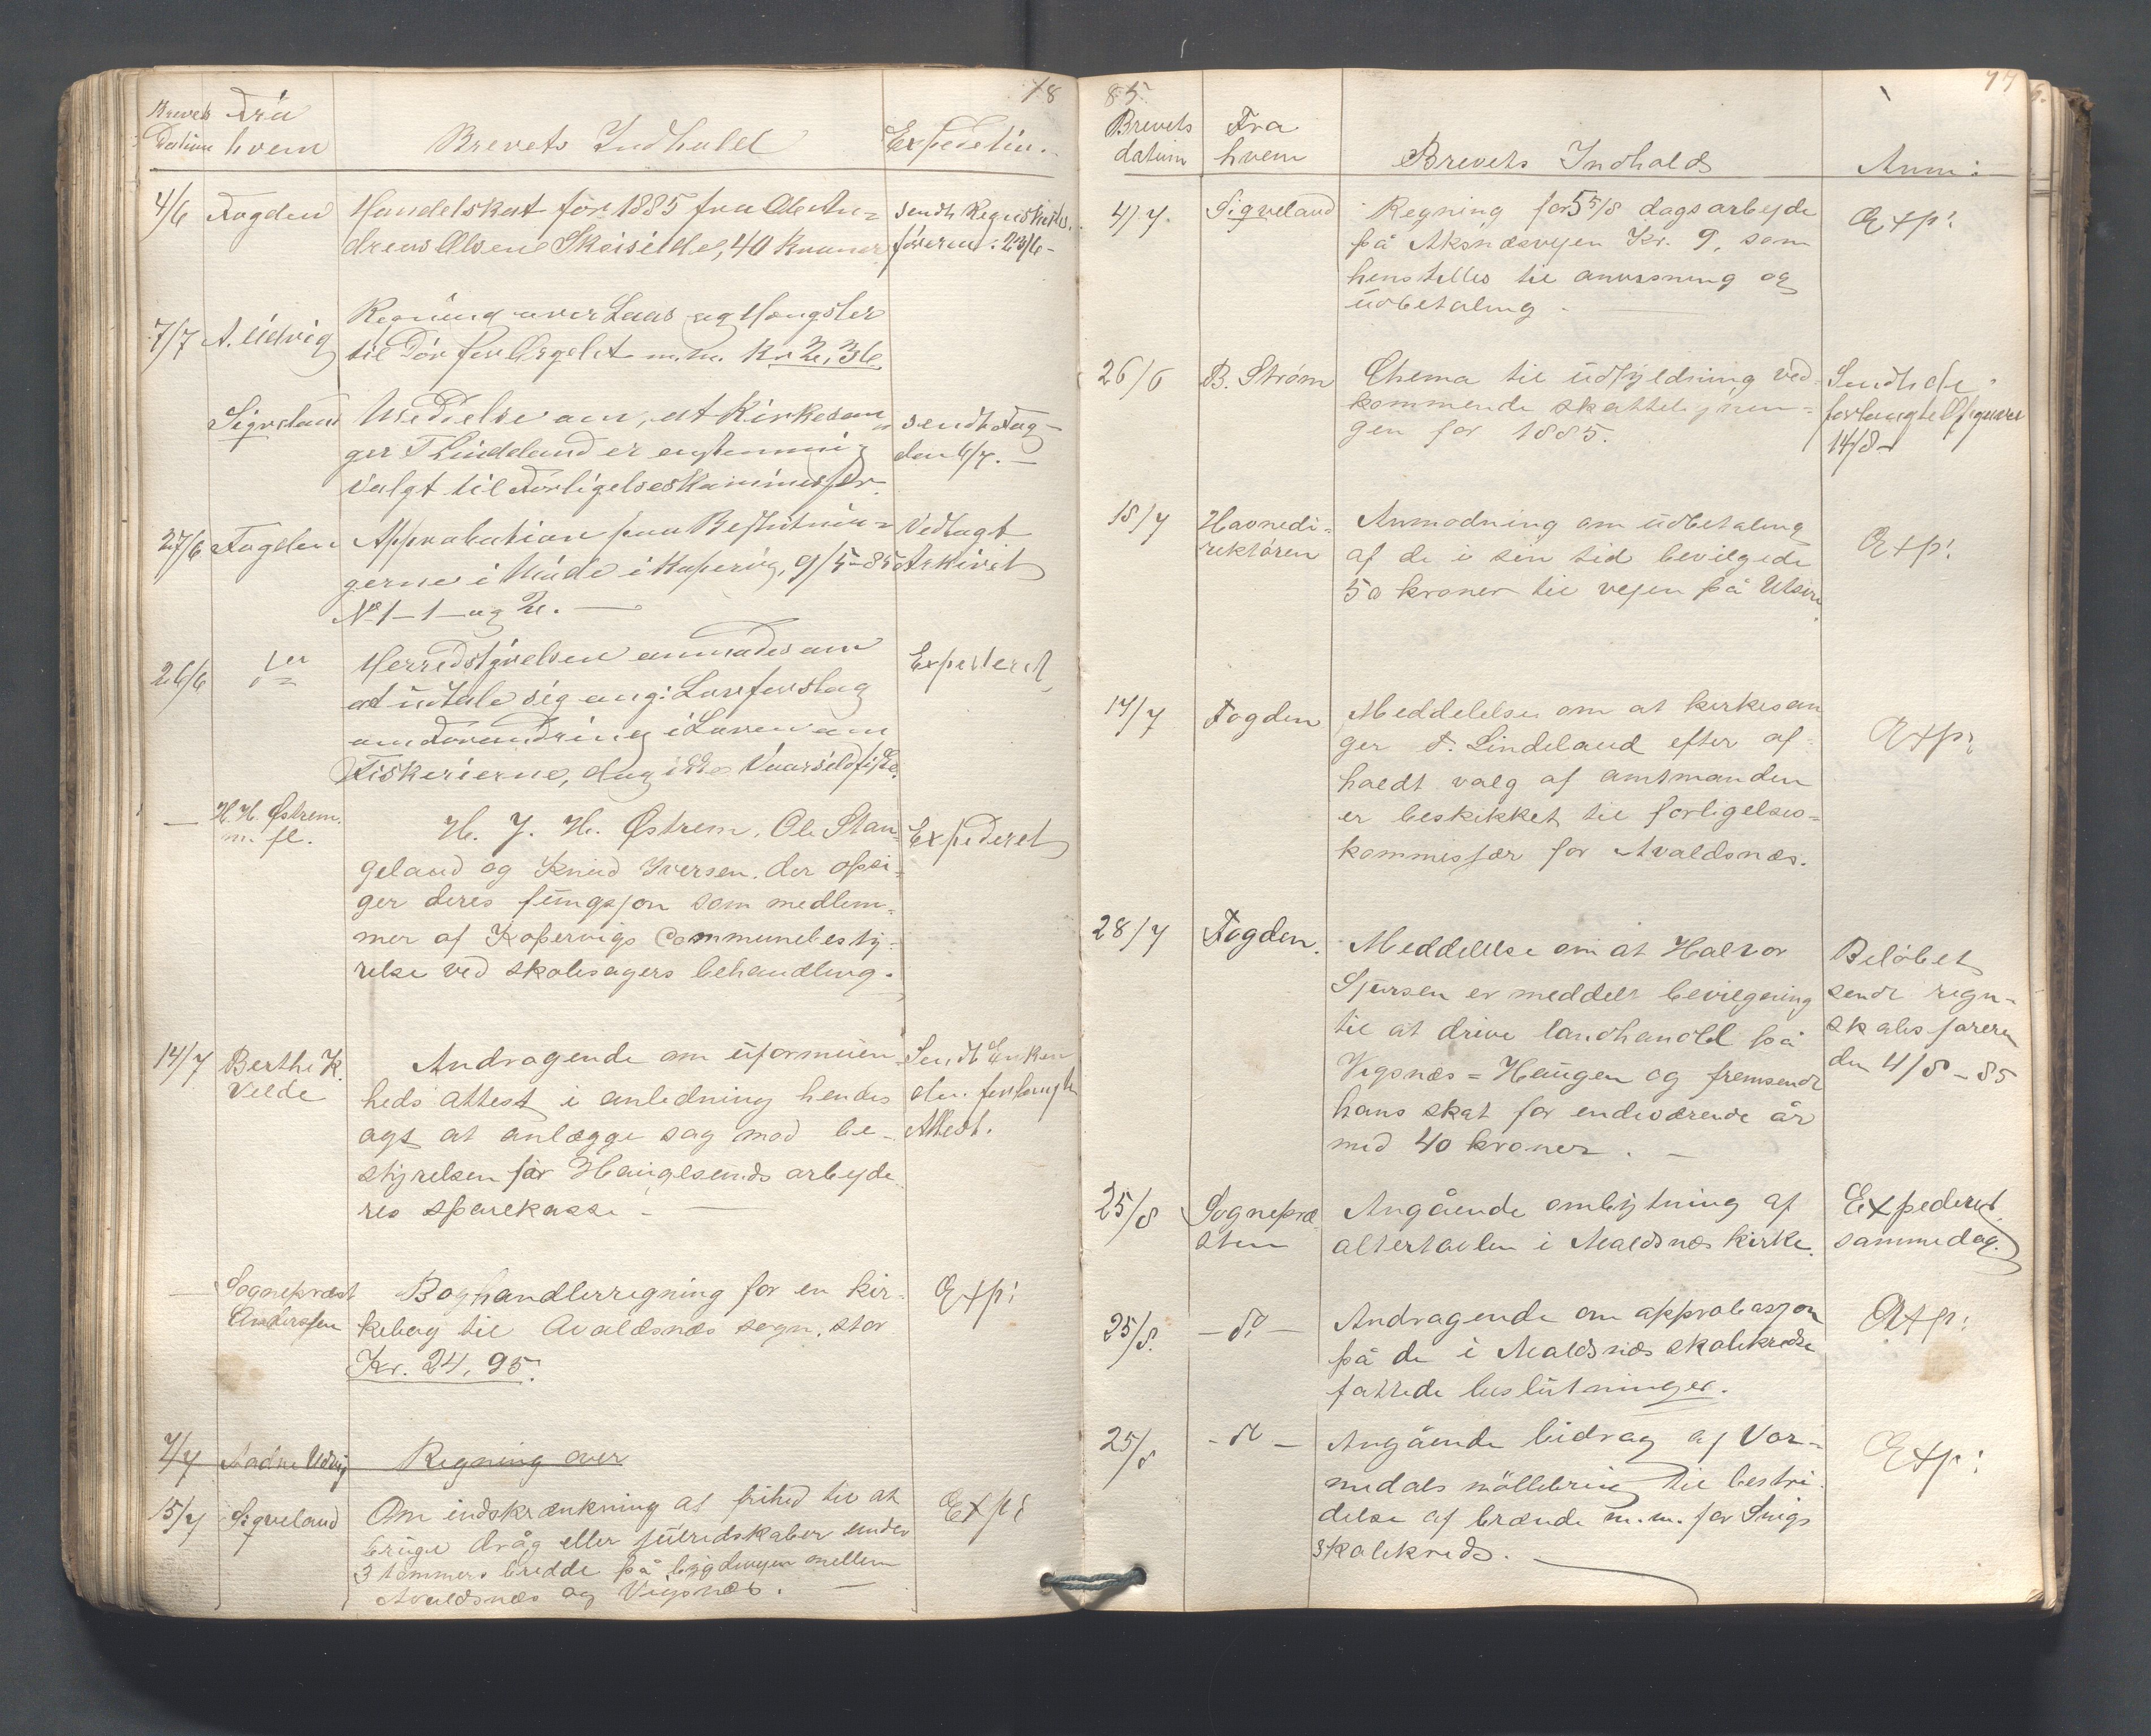 18
Brevets Fra
Datum hvem Brevets Indhold Expedition.
4/6 Fogden Handelskat for 1885 fra Ole An=
dreas Olsen Skeiseide, 40 Kroner
sendt Regnskabs.
føreren 23/6-
7/7 A. Udvig Regning over Laas og Hængsler
til Dør for Orgelet m.m. Kr 2,36
Sigveland Meddelse om, at Kirkesan=
ger T Lindeland er enstemmig
valgt til Forligelseskommissær
sendt Fog-
den 6/7. —
27/6 Fogden Approbation paa Beslutnin=
gerne i Møde i Kopervig, 9/5-85
No 1-1- og 2. —
Vedlagt
Arkivet
26/6 Herredstyrelsen anmodes om
at udtale sig ang: Lovforslag
om Forandring i Loven om
Fiskerierne, Vaarsildfiske.
Expederet
— H. H. Østrem. m. fl.
H. J. H. Østrem, Ole Stan-
geland og Knud Iversen. der opsi-
ger deres fungsjon som medlem-
mer af Kopervigs Communebesty-
relse ved skolesagers behandling.
Expederet
14/7 Berthe K.
Velde
Andragende om uformuen-
heds attest i anledning hendes
agt at anlægge sag mod be-
styrelsen for Haugesunds arbejde
res sparekasse —
Sendt Enken
den forlangte
Attest.
— Sognepræst
Anderssen
Boghandlerregning for en kir-
kebog til Avaldsnæs sogn. stor
Kr. 24,95.
Exp:
7/7 Aadne Udvig Regning over
15/7 Sigveland Om indskrænkning af frihed til at
bruge dråg eller julredskaber under
3 tommers bredde på bygdeveyen mellem
Avaldsnæs og Vigsnæs. —
Exp:
85. 77
Brevets Fra
datum hvem Brevets Indhold Anm:
4/7. Sigveland Regning for 5 5/8 dagsarbejde
på Aksnæsvejen Kr. 9, som
henstilles til anvisning og
udbetaling. —
Exp:
26/6 B. Strøm Chema til udfyldning ved-
kommende skatteligynin=
gen for 1885.
Sendt de
forlangte Opgaver
14/8-
18/7 Havnedi-
rektøren
Anmodning om udbetaling
af de i sin tid bevilgede
50 kroner til vejen på Utsire
Exp:
17/7 Fogden Meddelelse om at kirkesan
ger T. Lindeland efter af-
holdt valg af amtmanden
er beskikket til forligelses=
kommissær for Avaldsnæs.
Exp:
28/7 Fogden. Meddelelse om at Halvor
Sjursen er meddelt bevilgning
til at drive landhandel på
Vigsnæs=Haugen og fremsendt
hans skat for endeværende år
med 40 kroner. —
Beløbet
sendt regn-
skabsføreren
den 4/8-85
25/8 Sognepræ
sten
Angående ombytning af
altertavlen i Avaldsnæs kirke.
Expederet
sammedag.
25/8. — do — Andragende om approbasjon
på de i Avaldsnæs skolekredse
fattede beslutninger.
Exp:
25/8 - do — Angående bidrag af Vor-
nedals möllebrug til bestri-
delse af brænde m.m. for
skolekreds. —
Exp: